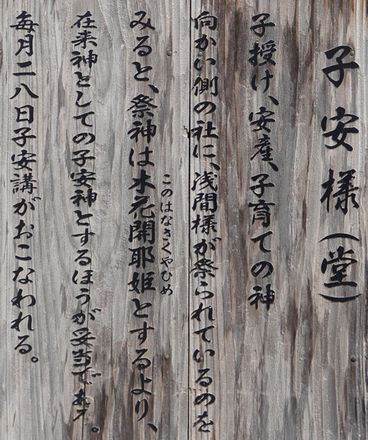 子安様(堂)
子授け、安産、子育ての神
向かい側の社に、浅間様が祭られているのを
みると、祭神は木花開耶姫とするより、
このはなさくやひめ
在来神としての子安神とするほうが妥当である。
毎月二八日子安講がおこなわれる。